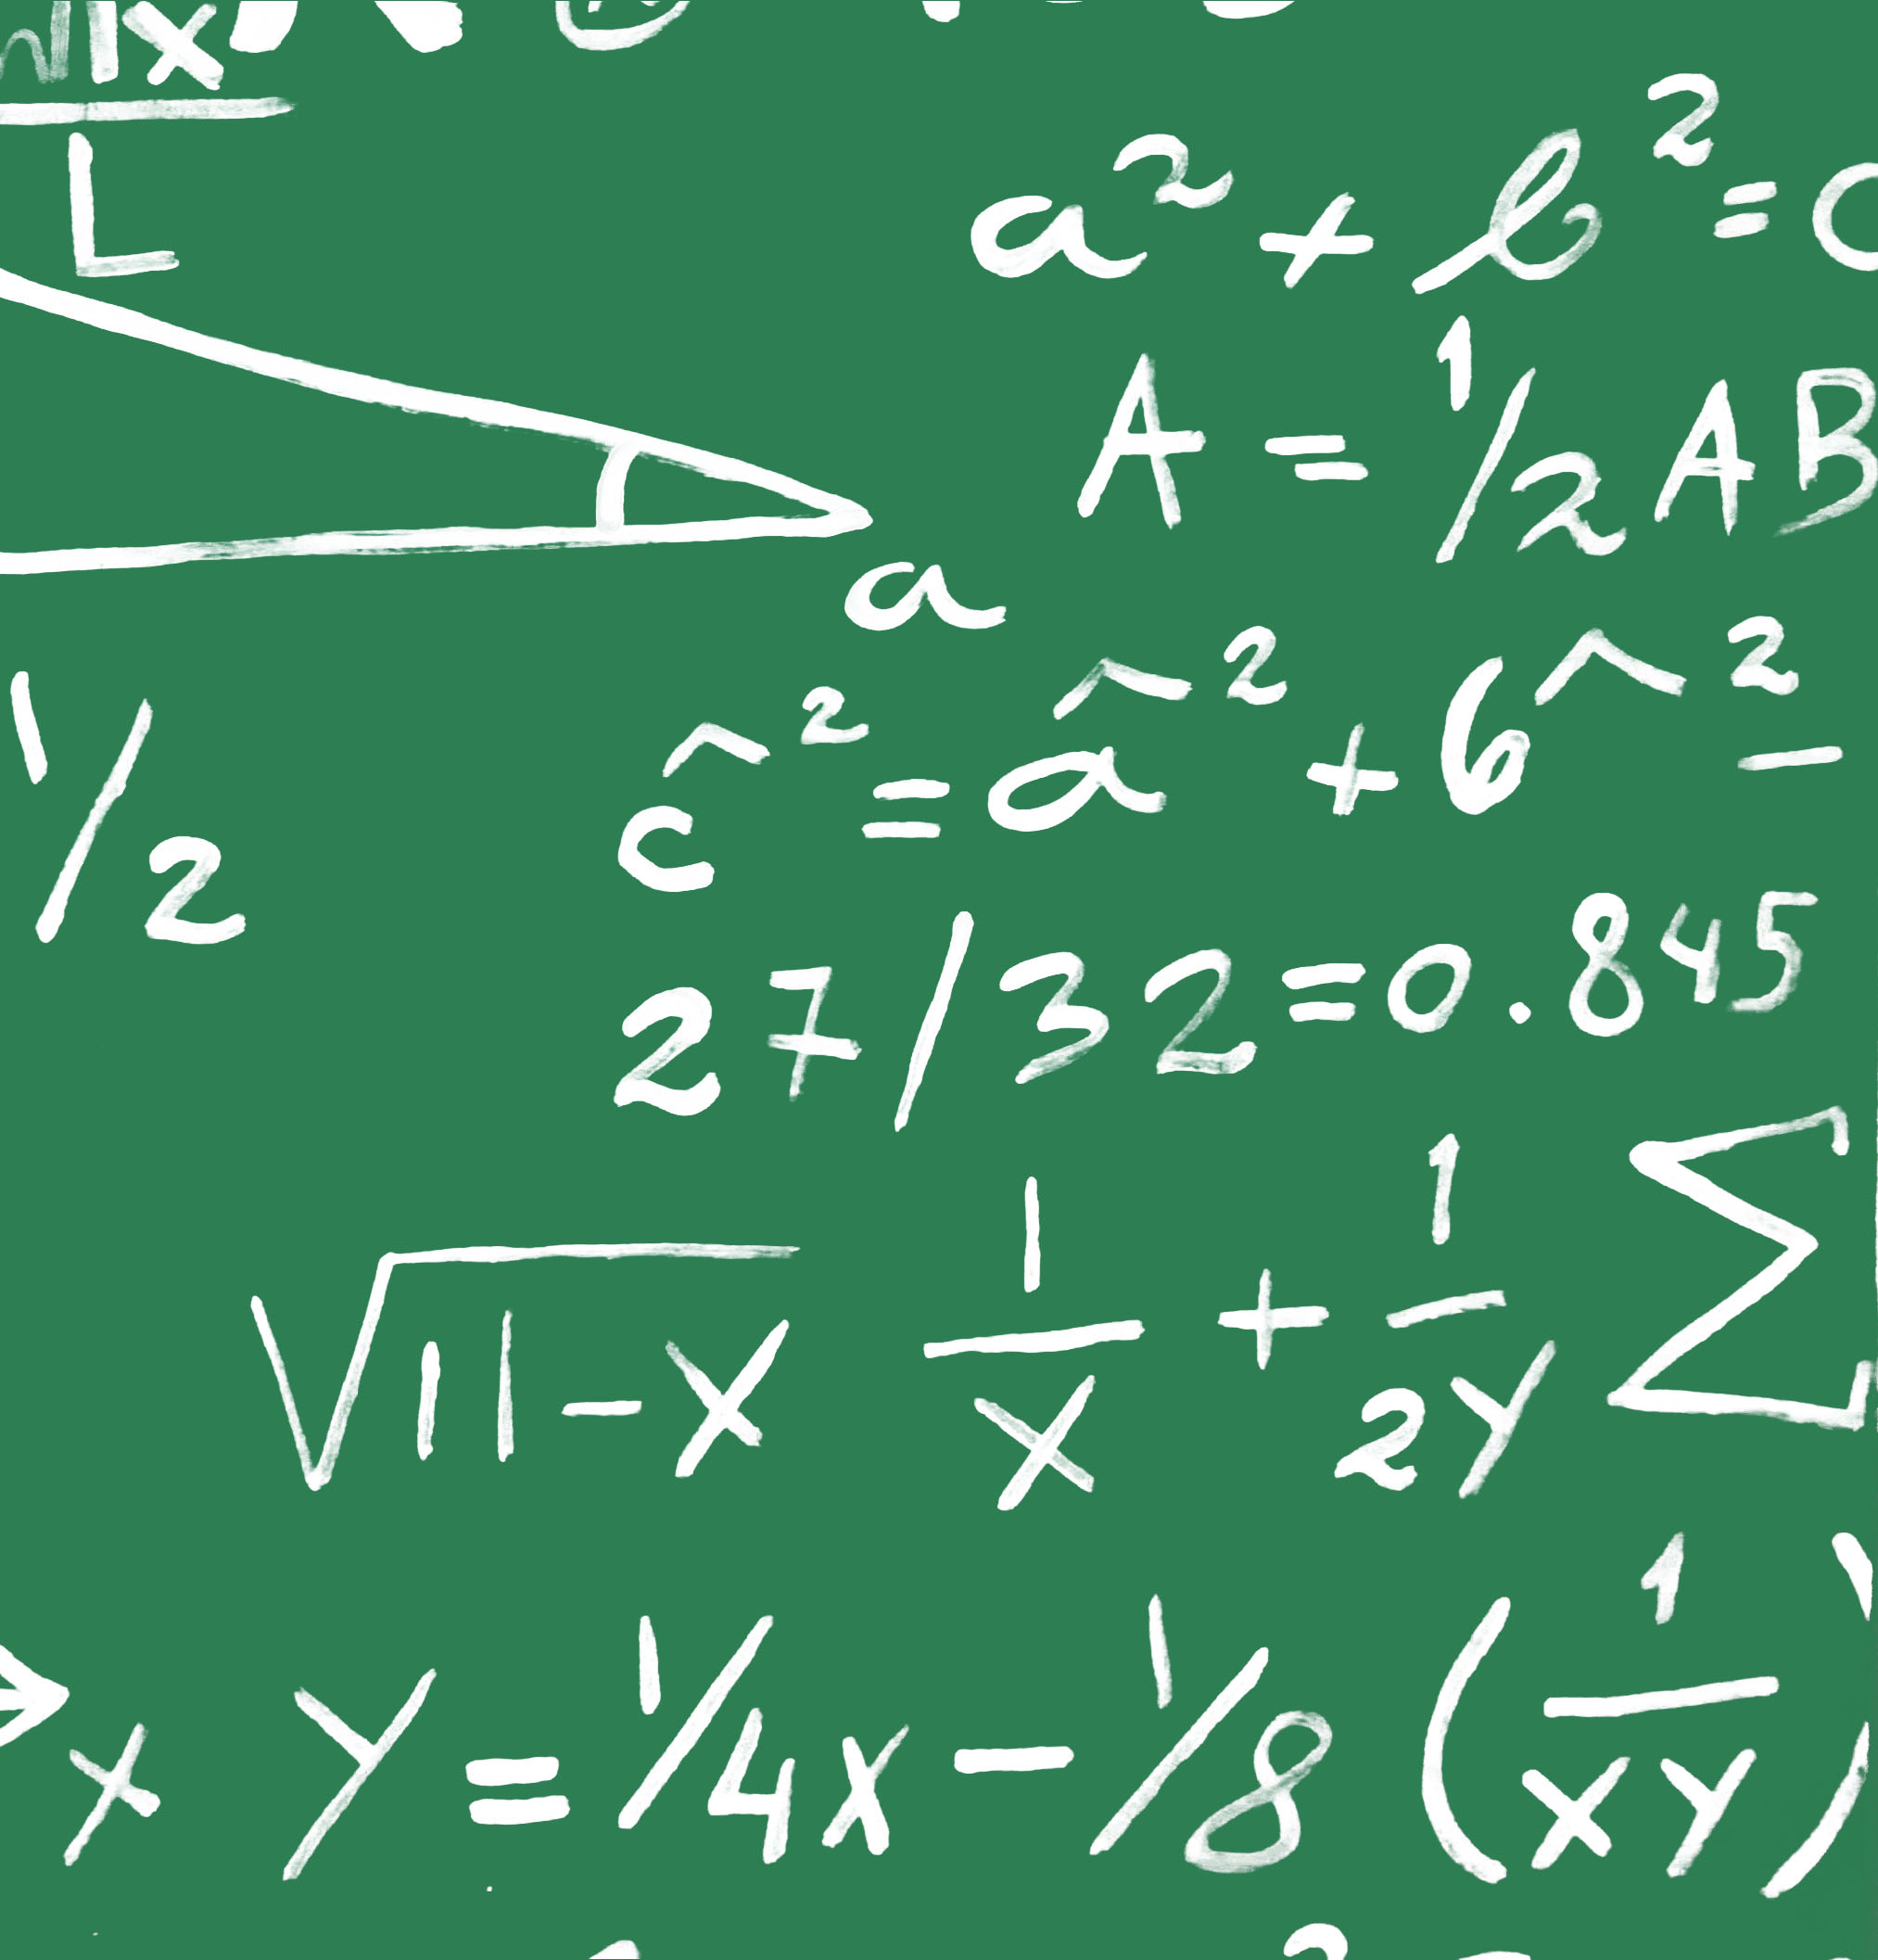 x
L
a² + b² =
A = 1/2 AB
a
ĉ² = â² + 6^² −
1/2
27/32=0.845
√11-x 1/x + 1/2Y Σ
x Y = 1/4x − 1/8 (1/xY)